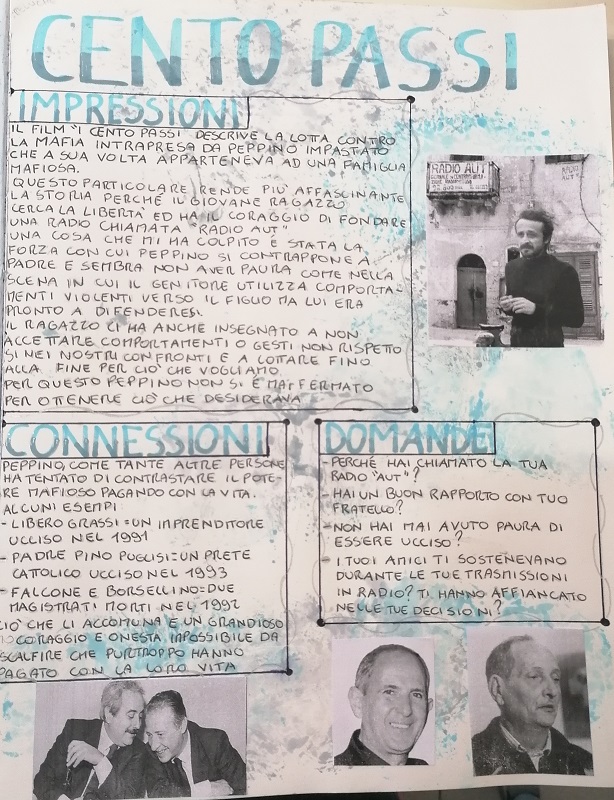 CENTO PASSI
IMPRESSIONI
IL FILM "I CENTO PASSI" DESCRIVE LA LOTTA CONTRO
LA MAFIA INTRAPRESA DA PEPPINO IMPASTATO
CHE A SUA VOLTA APPARTENEVA AD UNA FAMIGLIA
MAFIOSA.
QUESTO PARTICOLARE RENDE PIU' AFFASCINANTE
LA STORIA PERCHÉ IL GIOVANE RAGAZZO
CERCA LA LIBERTA' ED HA IL CORAGGIO DI FONDARE
UNA RADIO CHIAMATA "RADIO AUT"
UNA COSA CHE MI HA COLPITO È STATA LA
FORZA CON CUI PEPPINO SI CONTRAPPONE A
PADRE E SEMBRA NON AVER PAURA COME NELLA
SCENA IN CUI IL GENITORE UTILIZZA COMPORTA-
MENTI VIOLENTI VERSO IL FIGLIO MA LUI ERA
PRONTO A DIFENDERESI.
IL RAGAZZO CI HA ANCHE INSEGNATO A NON
ACCETTARE COMPORTAMENTI O GESTI NON RISPETTO
SI NEI NOSTRI CONFRONTI E A LOTTARE FINO
ALLA FINE PER CIÒ CHE VOGLIAMO.
PER QUESTO PEPPINO NON SI È MAI FERMATO
PER OTTENERE CIÒ CHE DESIDERAVA
RADIO AUT
RADIO
AUT
CONNESSIONI
PEPPINO, COME TANTE ALTRE PERSONE
HA TENTATO DI CONTRASTARE IL POTE-
RE MAFIOSO PAGANDO CON LA VITA.
ALCUNI ESEMPI
- LIBERO GRASSI = UN IMPRENDITORE
UCCISO NEL 1991
- PADRE PINO PUGLISI = UN PRETE
CATTOLICO UCCISO NEL 1993
- FALCONE E BORSELLINO = DUE
MAGISTRATI MORTI NEL 1992
CIO' CHE LI ACCOMUNA È UN GRANDIOSO
CORAGGIO E ONESTÀ IMPOSSIBILE DA
SCALFIRE CHE PURTROPPO HANNO
PAGATO CON LA LORO VITA
DOMANDE
- PERCHÉ HAI CHIAMATO LA TUA
RADIO "AUT"?
- HAI UN BUON RAPPORTO CON TUO
FRATELLO?
- NON HAI MAI AVUTO PAURA DI
ESSERE UCCISO?
- I TUOI AMICI TI SOSTENEVANO
DURANTE LE TUE TRASMISSIONI
IN RADIO? TI HANNO AFFIANCATO
NELLE TUE DECISIONI?